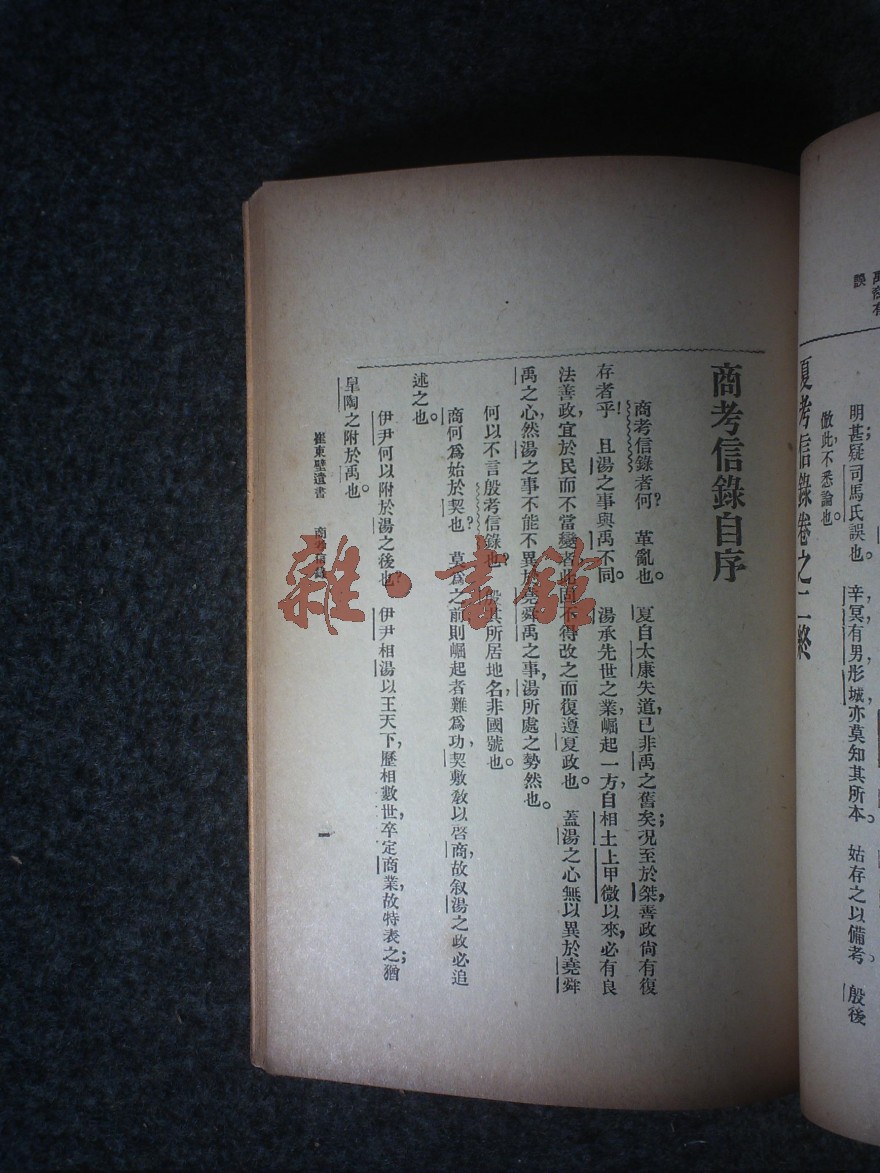 誤
明甚疑司馬氏誤也。　辛冥有男彤城亦莫知其所本。　姑存之以備考。　殷後
倣此，不悉論也。
夏考信錄卷之二終
商考信錄自序
商考信錄者何？　革亂也。　夏自太康失道，已非禹之舊矣；況至於桀，善政尙有復
存者乎！　且湯之事與禹不同。　湯承先世之業，崛起一方，自相土上甲微以來，必有良
法善政，宜於民而不當變者，此固不得改之而復遵夏政也。　蓋湯之心無以異於堯舜
禹之心，然湯之事不能不異於堯舜禹之事，湯所處之勢然也。
何以不言殷考信錄也？　殷其所居地名，非國號也。
商何爲始於契也？　莫爲之前則崛起者難爲功，契敷敎以啓商，故叙湯之政必追
述之也。
伊尹何以附於湯之後也？　伊尹相湯以王天下，歷相數世，卒定商業，故特表之；猶
臯陶之附於禹也。
崔東壁遺書　商考信錄
一
雜·書館